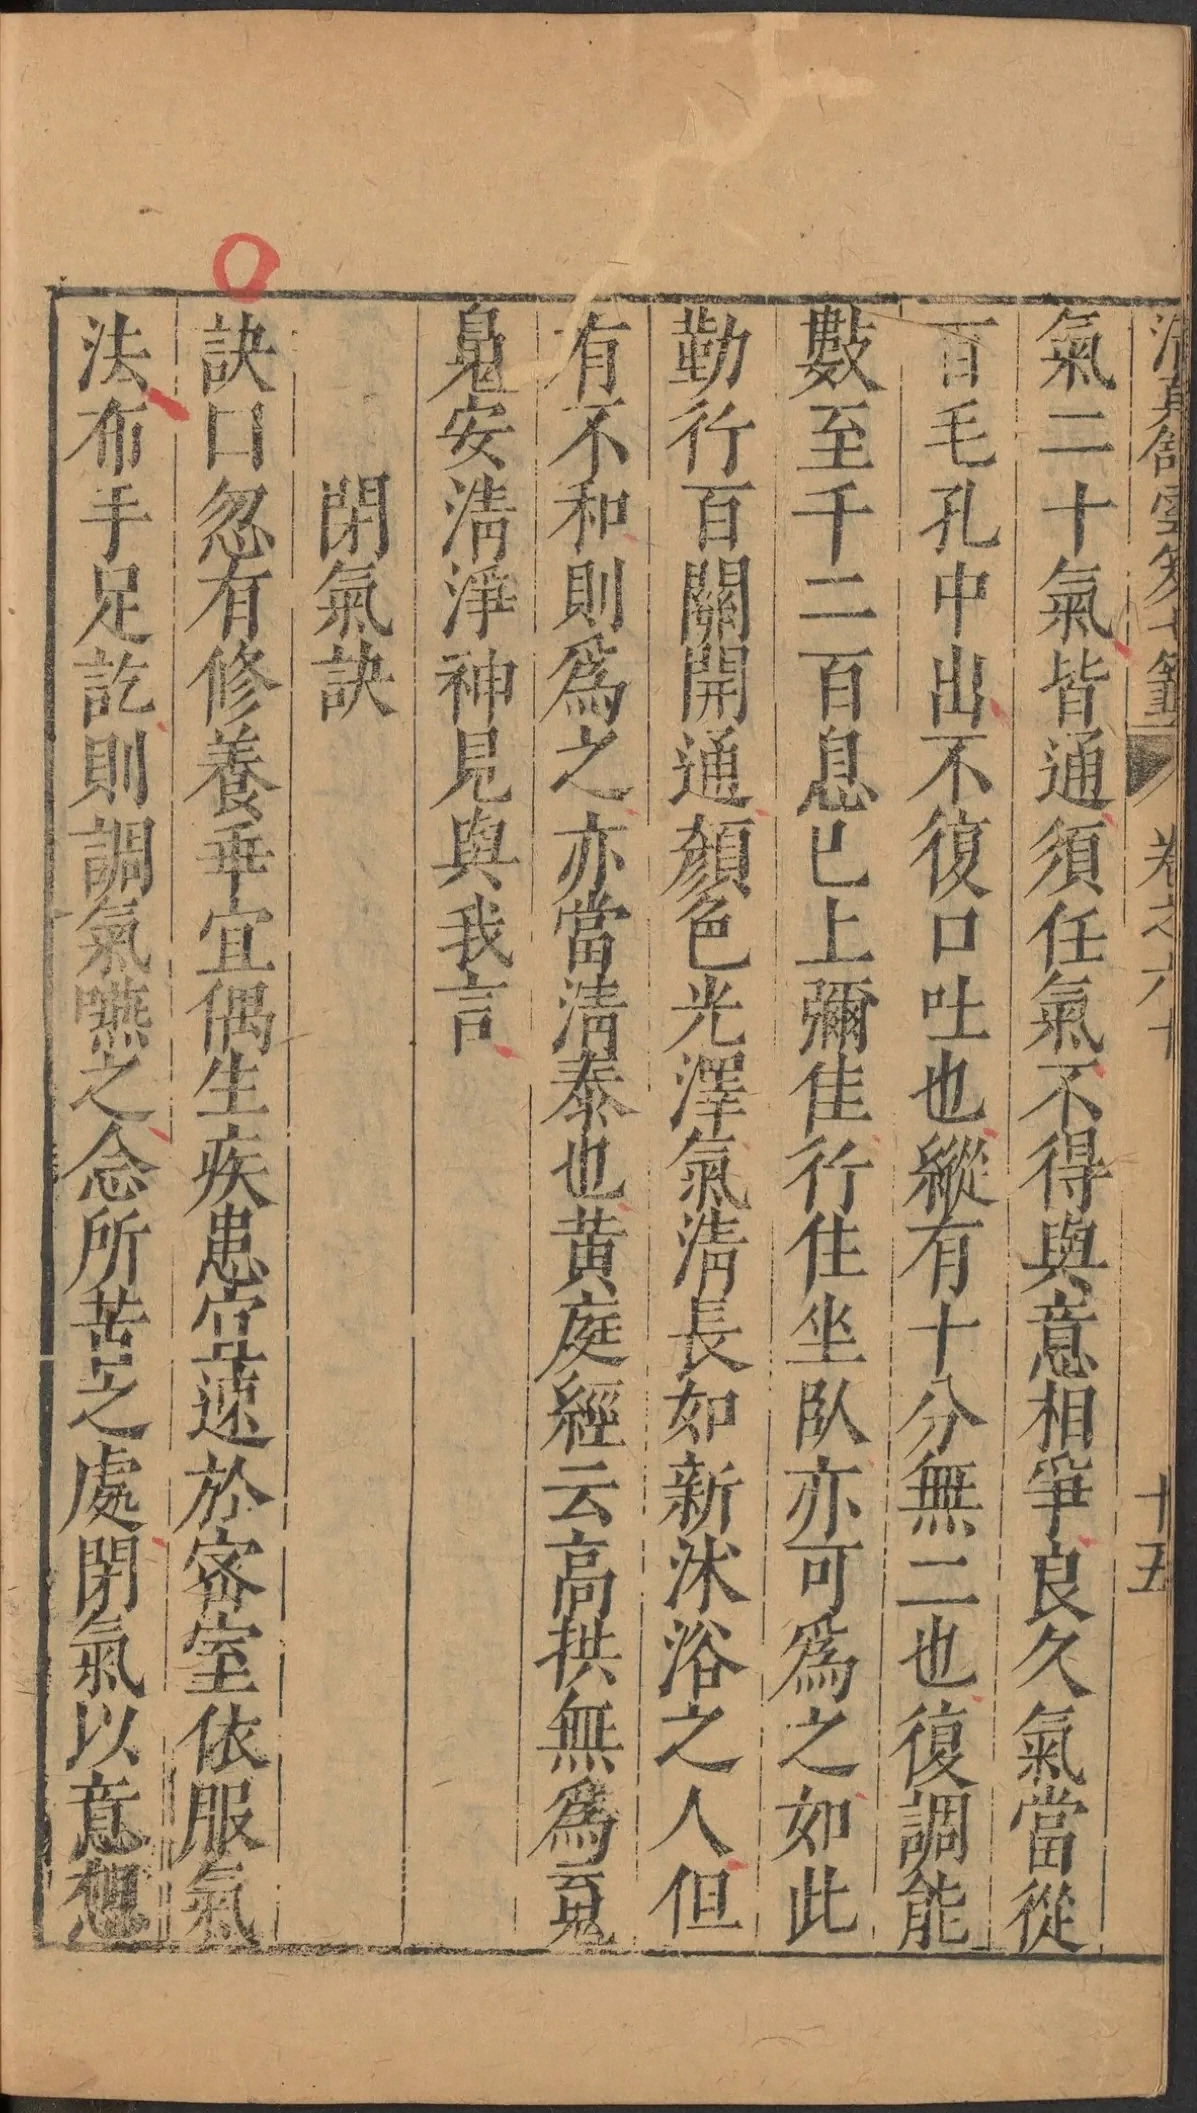 清真舘雲笈七籤 卷之六十 十五
氣二十氣皆通須任氣不得與意相爭良久氣當從
百毛孔中出不復口吐也縱有十分無二也復調能
數至千二百息已上彌佳行住坐臥亦可爲之如此
勤行百關開通顏色光澤氣淸長如新沐浴之人但
有不和則爲之亦當淸泰也黄庭經云高拱無爲䰟
魄安淸淨神見與我言
閉氣訣
訣曰忽有修養乖宜偶生疾患宜速於密室依服氣
法布手足訖則調氣嚥之念所苦之處閉氣以意想